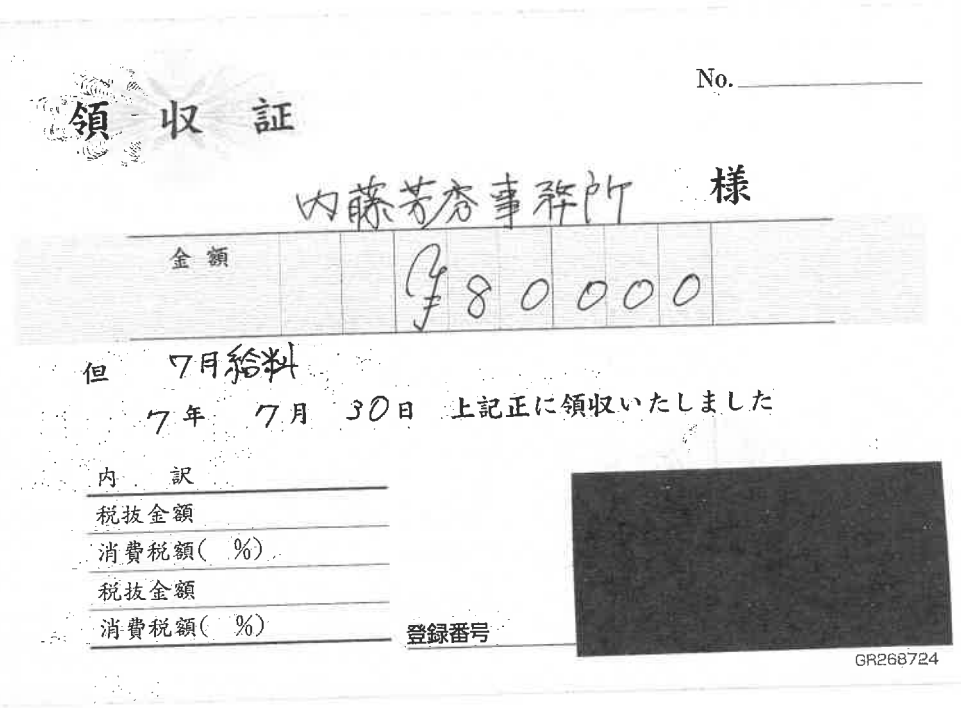 No.
領収証
内藤芳秀事務所 様
金額 ¥80000
但 7月給料
7年 7月 30日 上記正に領収いたしました
内訳
税抜金額
消費税額( %)
税抜金額
消費税額( %)
登録番号
GR268724